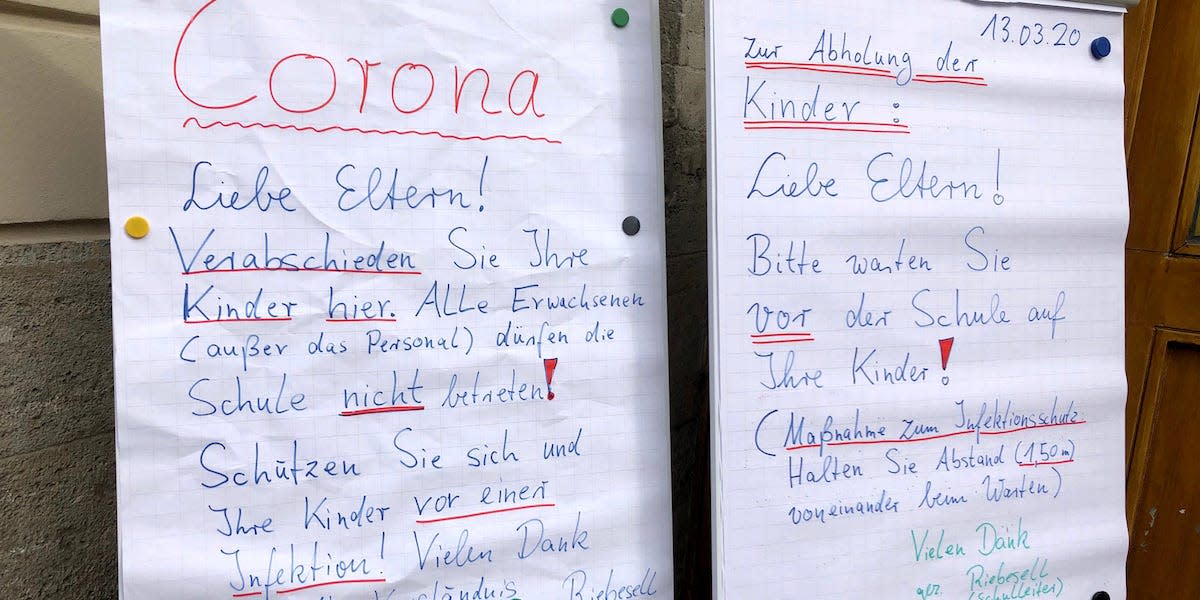 Corona
Liebe Eltern!
Verabschieden Sie Ihre
Kinder hier. ALLe Erwachsenen
(außer das Personal) dürfen die
Schule nicht betreten!
Schützen Sie sich und
Ihre Kinder vor einer
Infektion! Vielen Dank
Verständnis Riebesell
13.03.20
Zur Abholung der
Kinder:
Liebe Eltern!
Bitte warten Sie
vor der Schule auf
Ihre Kinder!
(Maßnahme zum Infektionsschutz.
Halten Sie Abstand (1,50m)
voneinander beim Warten)
Vielen Dank
gez. Riebesell
(Schulleiter)